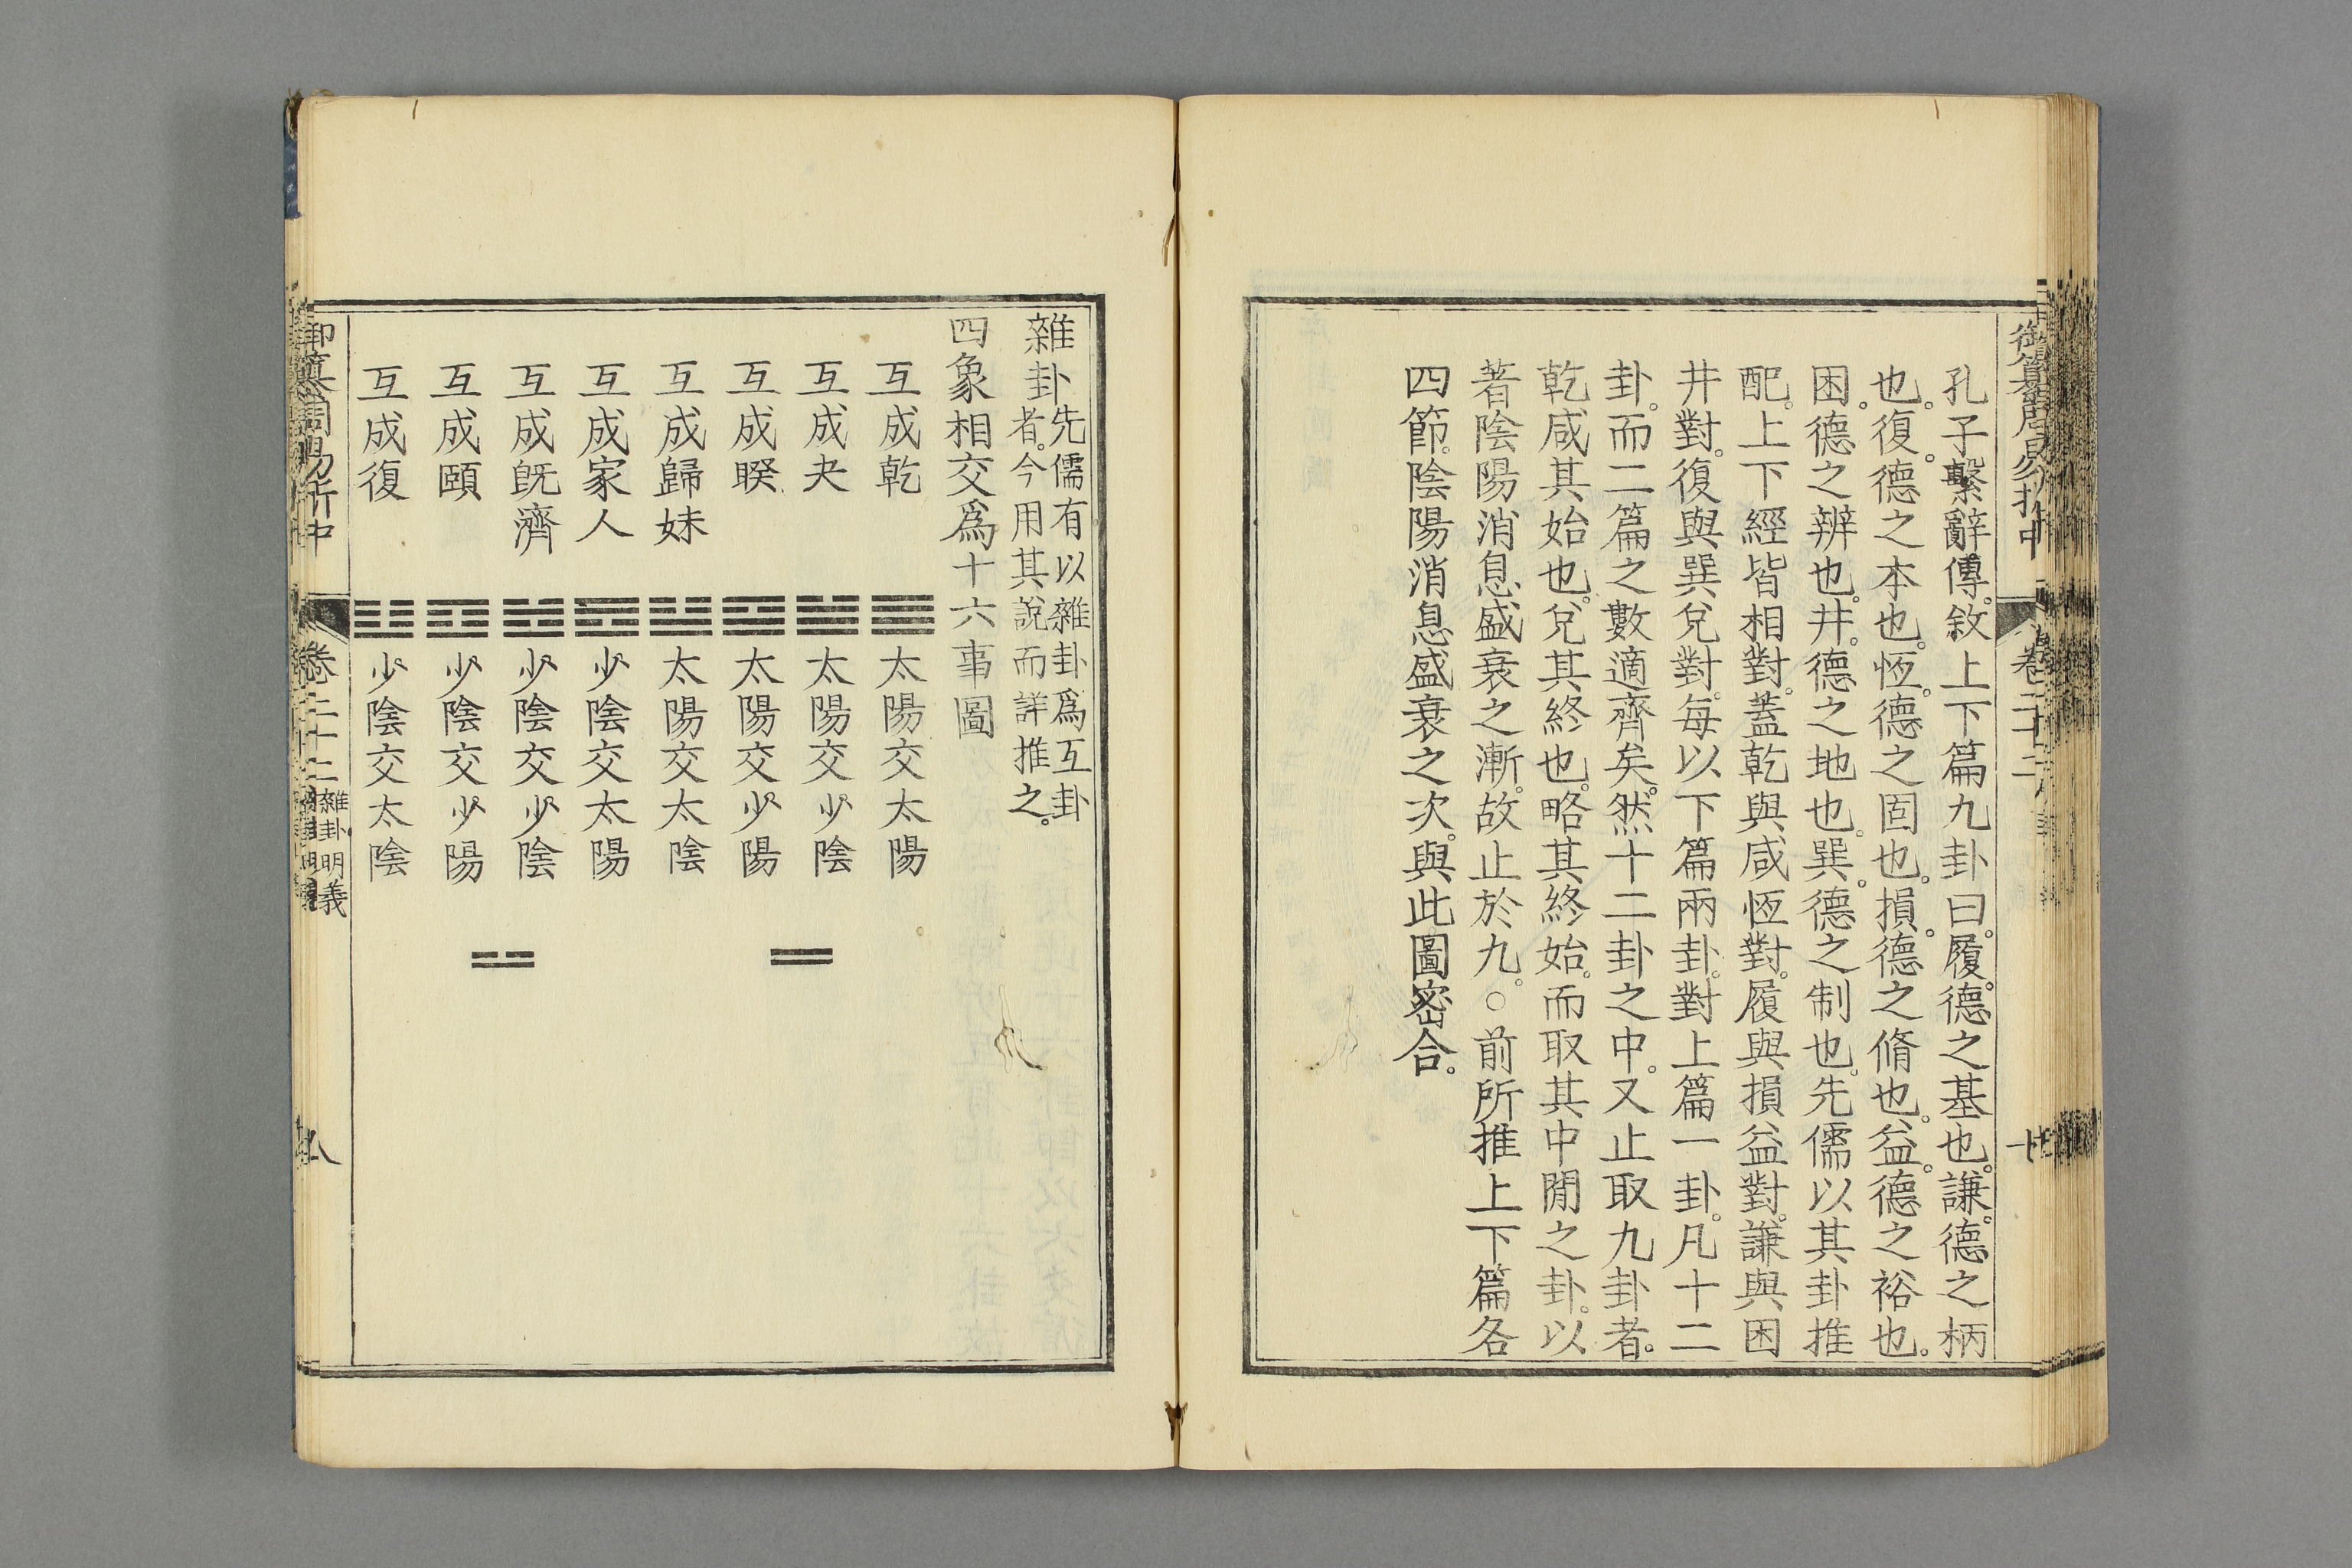 孔子繫辭傳。敘上下篇九卦曰。履。德之基也。謙。德之柄
也。復。德之本也。恆。德之固也。損。德之脩也。益。德之裕也。
困。德之辨也。井。德之地也。巽。德之制也。先儒以其卦推
配。上下經皆相對。蓋乾與咸恆對。履與損益對。謙與困
井對。復與巽兌對。每以下篇兩卦。對上篇一卦。凡十二
卦。而二篇之數適齊矣。然十二卦之中。又止取九卦者。
乾咸其始也。兌其終也。略其終始。而取其中閒之卦。以
著陰陽消息盛衰之漸。故止於九。○前所推上下篇各
四節。陰陽消息盛衰之次。與此圖密合。
雜卦先儒有以雜卦爲互卦
者。今用其說而詳推之。
四象相交爲十六事圖
互成乾 太陽交太陽
互成夬 太陽交少陰
互成睽 太陽交少陽
互成歸妹 太陽交太陰
互成家人 少陰交太陽
互成旣濟 少陰交少陰
互成頤 少陰交少陽
互成復 少陰交太陰
卷二十二
雜卦明義